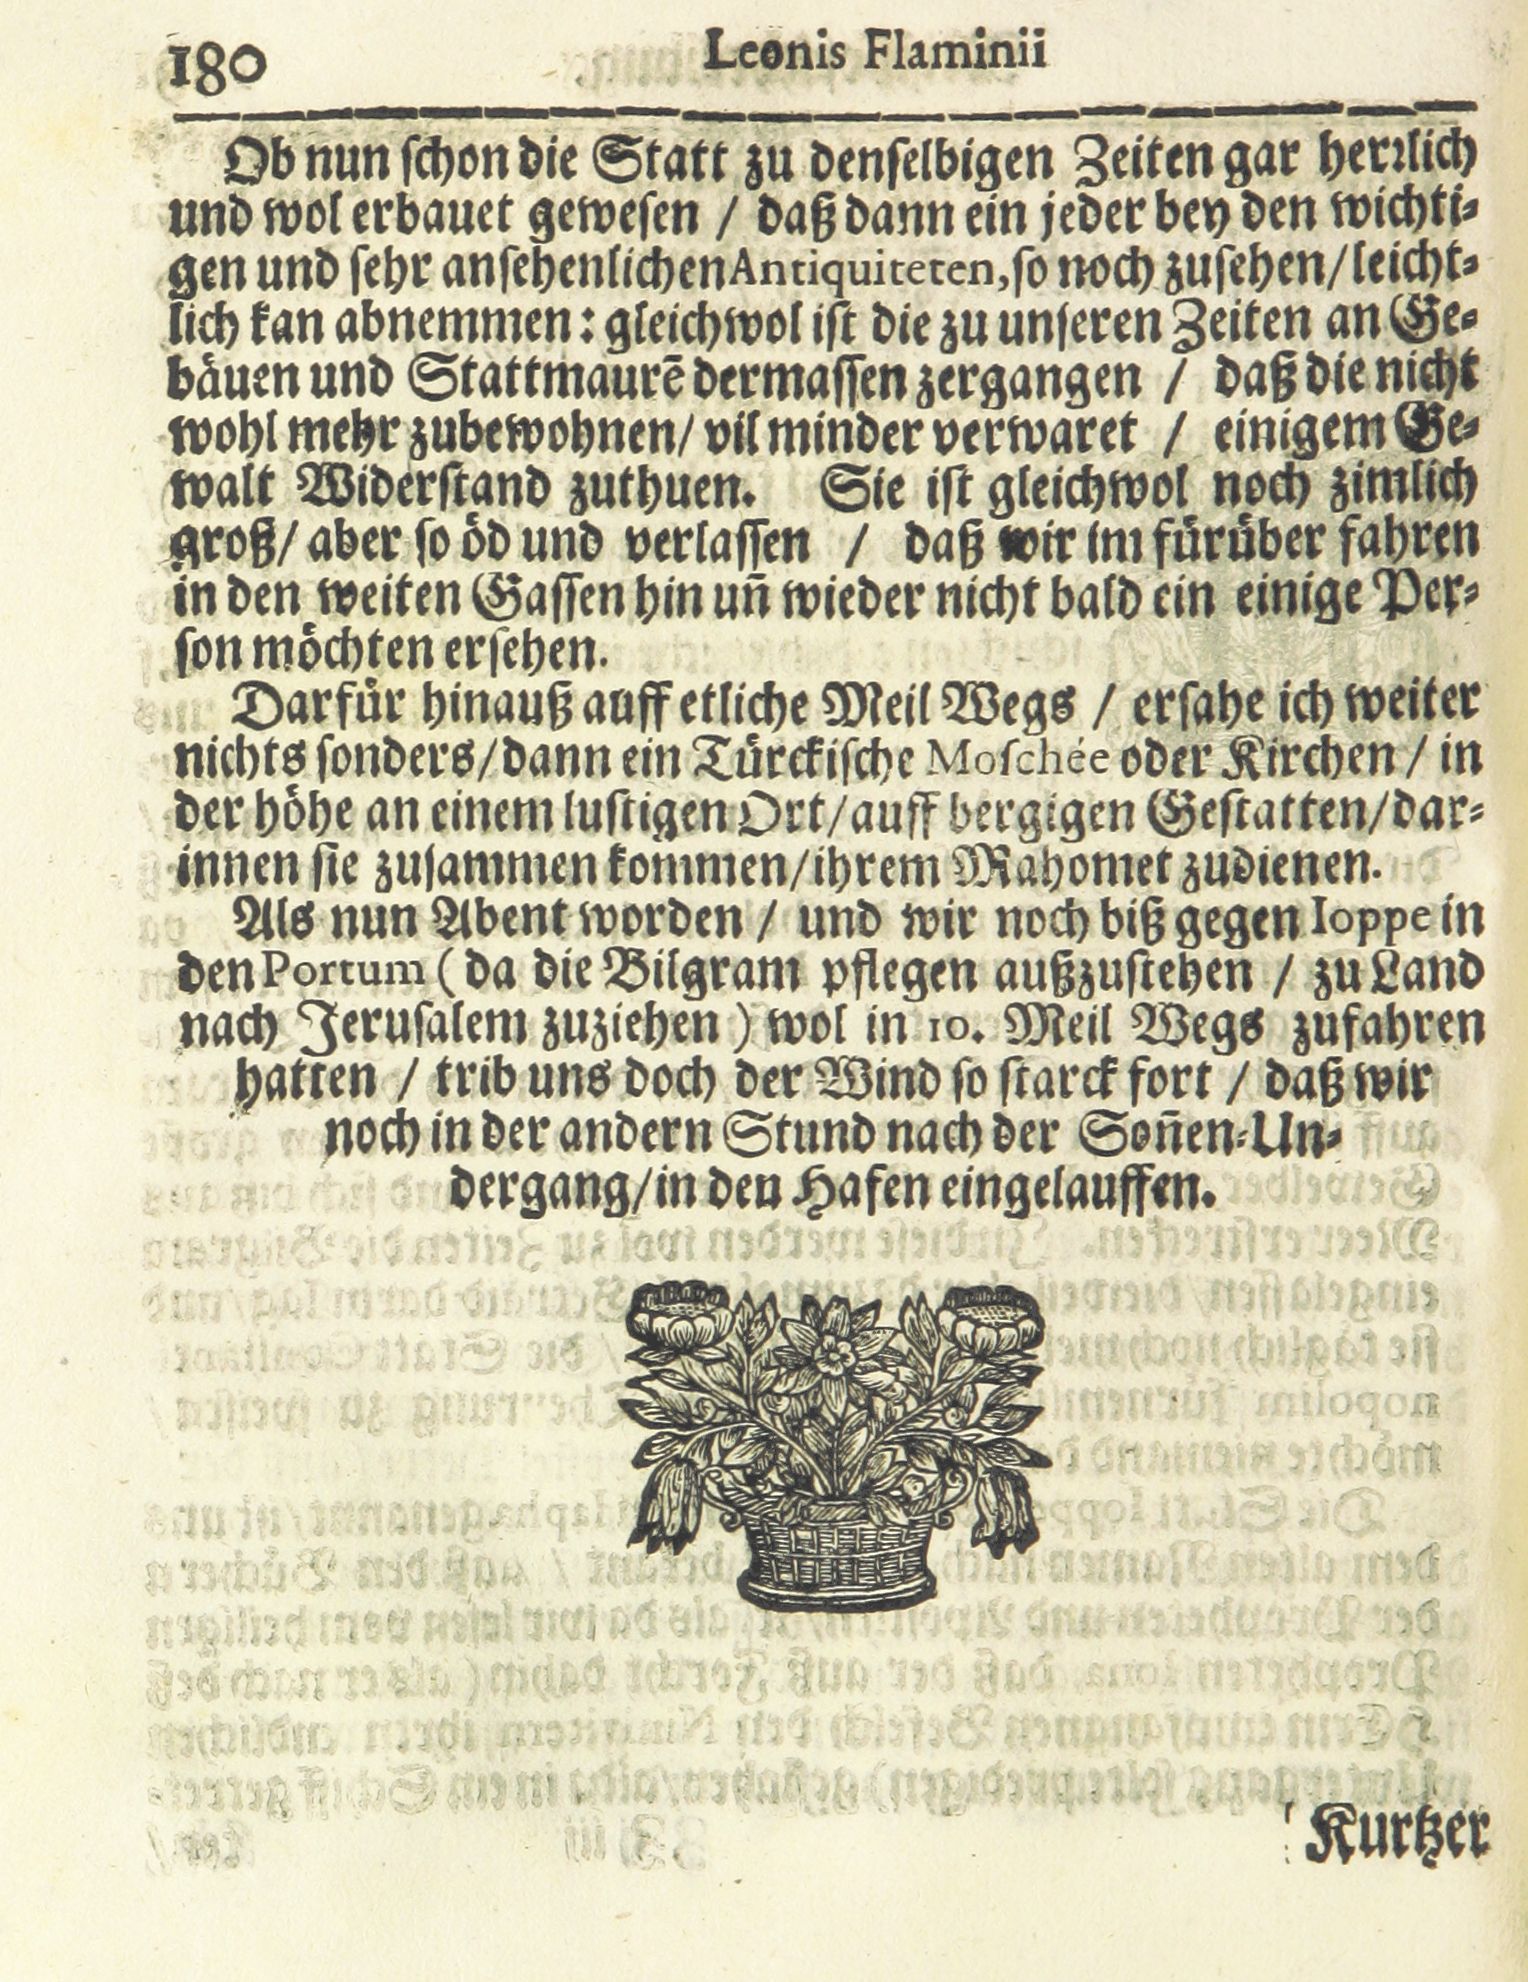 180
Leonis Flaminii
Ob nun ſchon die Statt zu denſelbigen Zeiten gar herꝛlich
und wol erbauet geweſen / daß dann ein jeder bey den wichti⸗
gen und ſehr anſehenlichen Antiquiteten, ſo noch zuſehen / leicht⸗
lich kan abnemmen : gleichwol iſt die zu unſeren Zeiten an Ge⸗
bäuen und Stattmaurē dermaſſen zergangen / daß die nicht
wohl mehr zubewohnen / vil minder verwaret / einigem Ge⸗
walt Widerſtand zuthuen. Sie iſt gleichwol noch zimlich
groß / aber ſo öd und verlaſſen / daß wir im fürüber fahren
in den weiten Gaſſen hin uñ wieder nicht bald ein einige Per⸗
ſon möchten erſehen.
Darfür hinauß auff etliche Meil Wegs / erſahe ich weiter
nichts ſonders / dann ein Türckiſche Moſchée oder Kirchen / in
der höhe an einem luſtigen Ort / auff bergigen Geſtatten / dar⸗
innen ſie zuſammen kommen / ihrem Mahomet zudienen.
Als nun Abent worden / und wir noch biß gegen Ioppe in
den Portum ( da die Bilgram pflegen außzuſtehen / zu Land
nach Jeruſalem zuziehen ) wol in 10. Meil Wegs zufahren
hatten / trib uns doch der Wind ſo ſtarck fort / daß wir
noch in der andern Stund nach der Soñen⸗Un⸗
dergang / in den Hafen eingelauffen.
Kurtzer